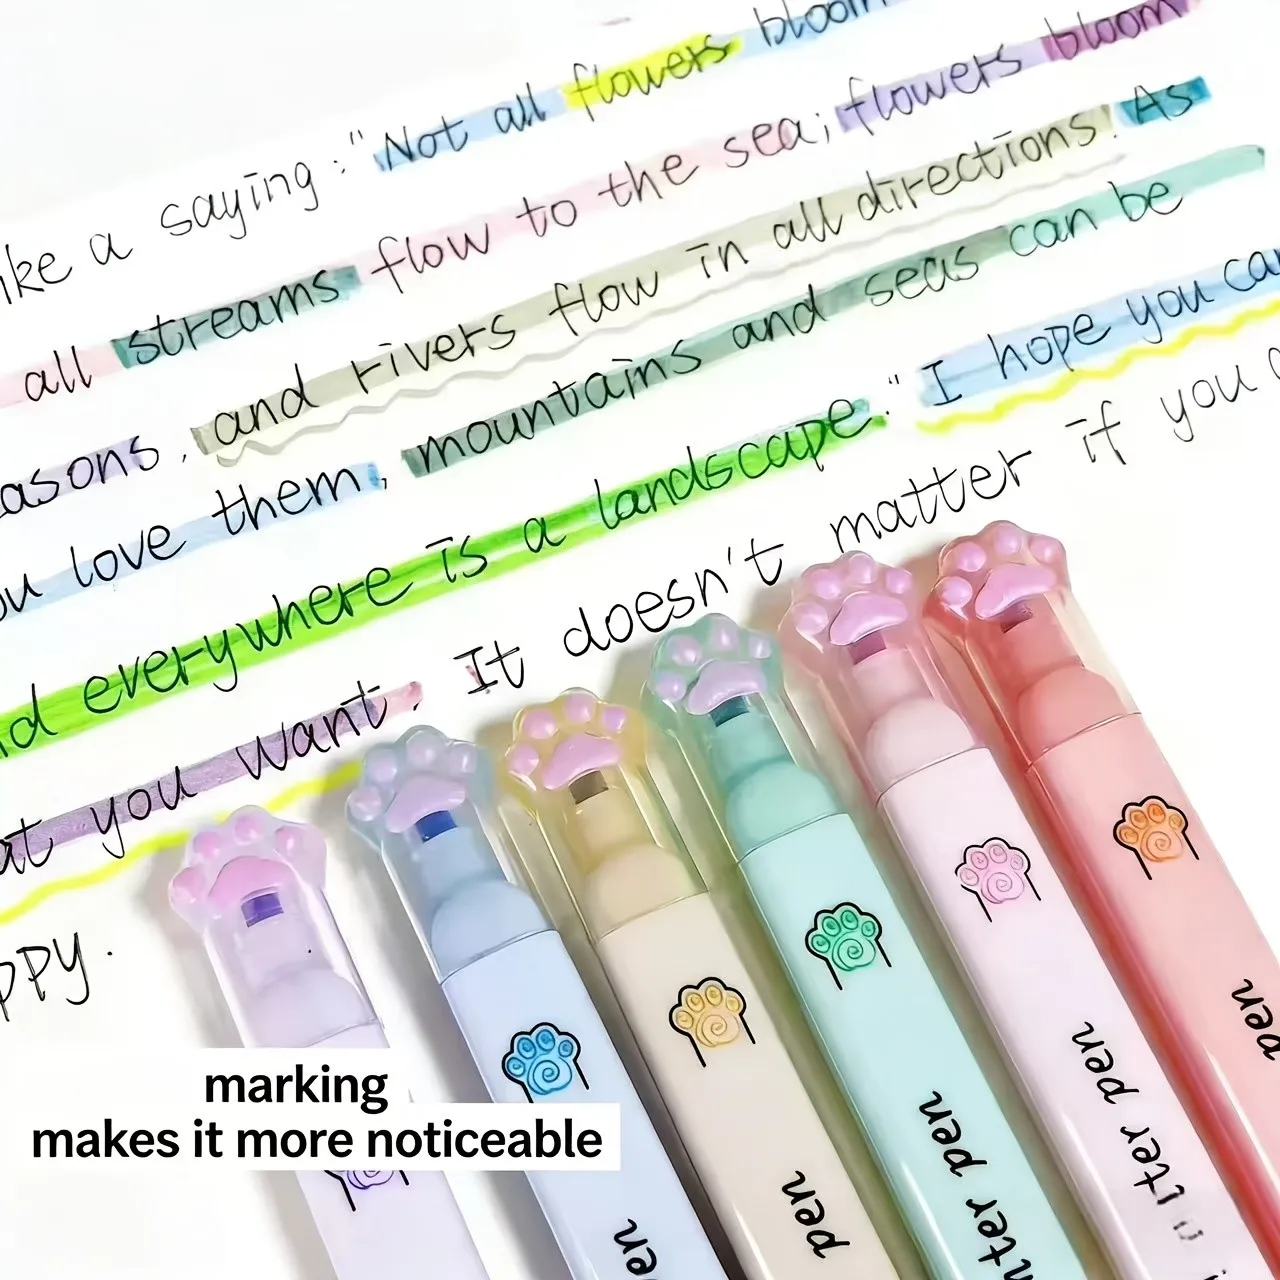 a saying: "Not all flowers bloom
all streams flow to the sea; flowers bloom
and rivers flow in all directions. As
love them, mountains and seas can be
everywhere is a landscape." I hope you can
you want. It doesn't matter if you
marking
makes it more noticeable
pen
pen
pen
pen